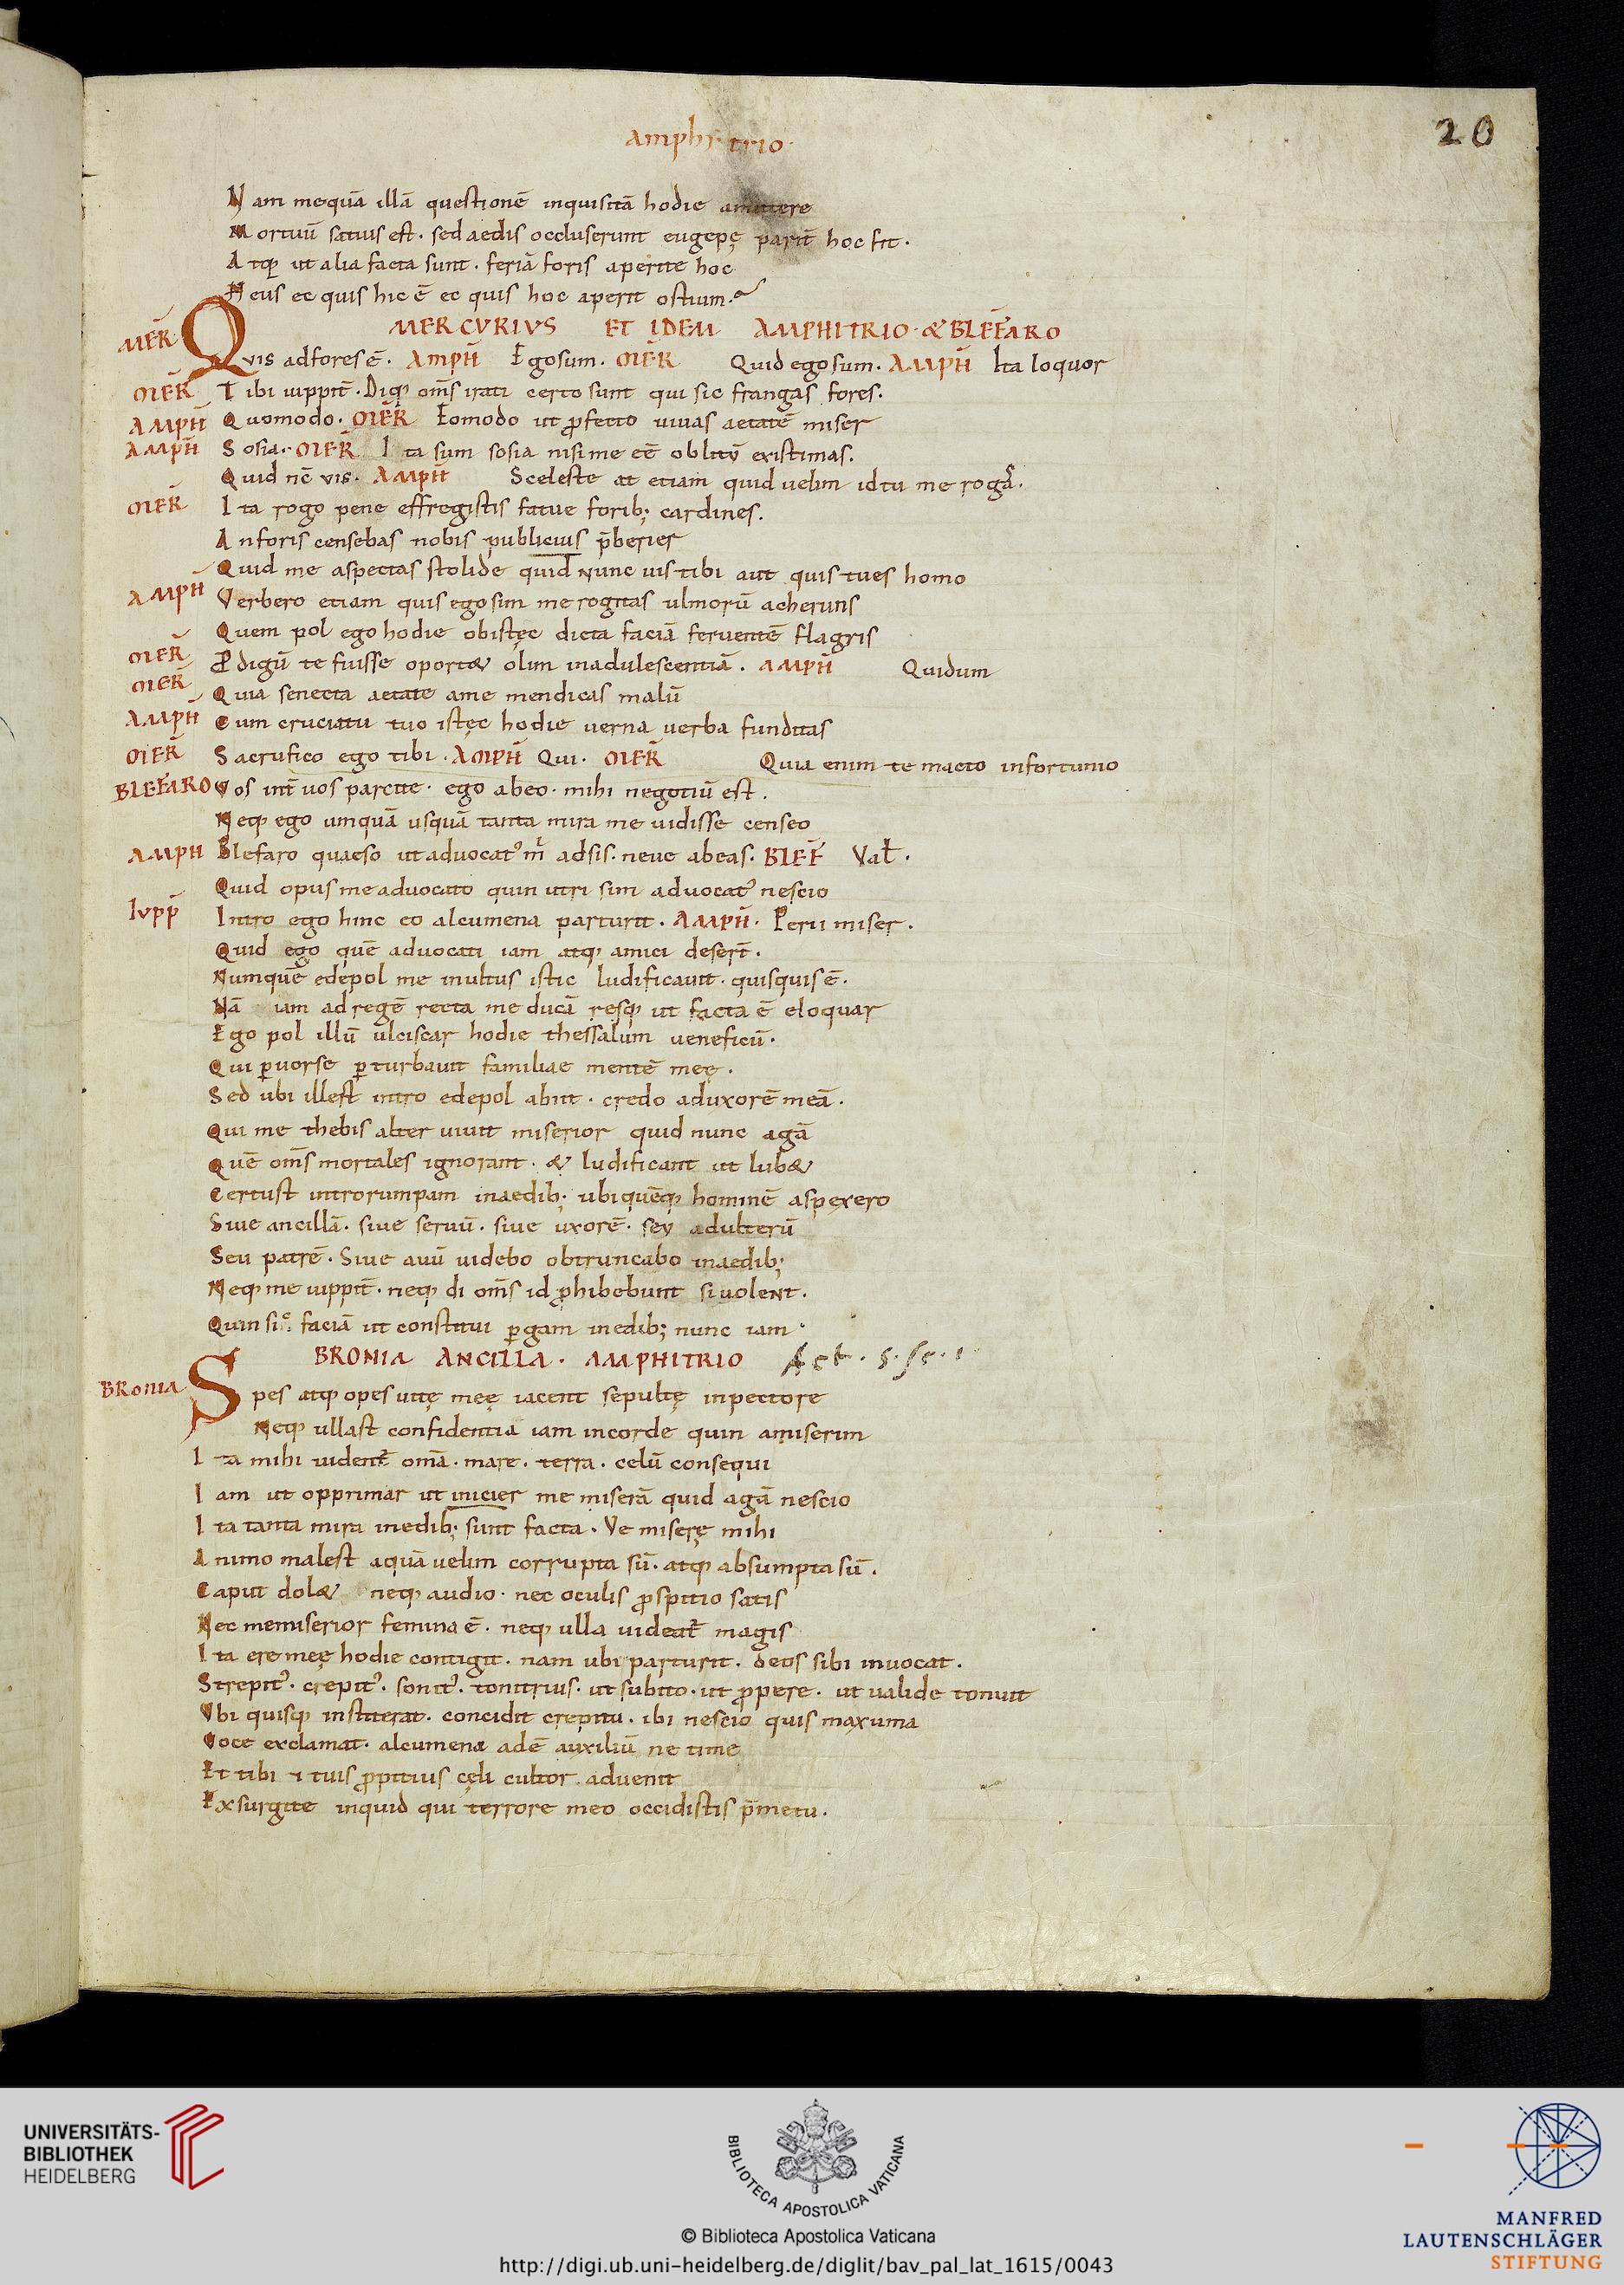 20
amphitrio
Nam mequā illā questionē inquisitā hodie amittere
Mortuū satius est. sed aedis occluserunt eugepę parit̄ hoc fit.
Atq; ut alia facta sunt. feriā foris aperite hoc
Heus ec quis hic ē ec quis hoc aperit ostium.
MERCVRIVS ET IDEM AMPHITRIO & BLEF̄ARO
MER̄ Qvis adfores ē. AMPH̄ Egosum. MER̄ Quid egosum. AMPH̄ Ita loquor
MER̄ Tibi iuppit̄. Diq; om̄s irati certo sunt qui sic frangas fores.
AMPH̄ Quomodo. MER̄ Eomodo ut ꝓfecto uiuas aetatē miser
AMPH̄ Sosia. MER̄ Ita sum sosia nisi me eē oblitū existimas.
Quid nc̄ vis. AMPH̄ Sceleste at etiam quid uelim id tu me rogas.
MER̄ Ita rogo pene effregistis fatue forib; cardines.
An foris censebas nobis publicius p̄berier
Quid me aspectas stolide quid nunc uis tibi aut quis tues homo
AMPH̄ Verbero etiam quis ego sim me rogitas ulmorū acheruns
Quem pol ego hodie obistęc dicta faciā feruentē flagris
MER̄ Ꝓdigū te fuisse oport& olim inadulescentiā. AMPH̄ Quidum
MER̄ Quia senecta aetate ame mendicas malū
AMPH̄ Cum cruciatu tuo istęc hodie uerna uerba funditas
MER̄ Sacrufico ego tibi. AMPH̄ Qui. MER̄ Quia enim te macto infortunio
BLEF̄ARO Vos int̄ uos parcite. ego abeo. mihi negotiū est.
Neq; ego umquā usquā tanta mira me uidisse censeo
AMPH Blefaro quaeso ut aduocat᾿ m̄ adsis. neue abeas. BLEF̄ Val̄.
Quid opus me aduocato quin utri sim aduocat᾿ nescio
IVPP̄ Intro ego hinc eo alcumena parturit. AMPH̄. Perii miser.
Quid ego quē aduocati iam atq; amici deser̄t.
Numquē edepol me inultus istic ludificauit. quisquis ē.
Nā iam ad regē recta me ducā resq; ut facta ē eloquar
Ego pol illū ulciscar hodie thessalum ueneficū.
Qui ꝑuorse ꝑturbauit familiae mentē meę.
Sed ubi illest intro edepol abiit. credo aduxorē meā.
Qui me thebis alter uiuit miserior quid nunc agā
Quē om̄s mortales ignorant. & ludificant ut lub&
Certust introrumpam inaedib; ubi quēq; hominē aspexero
Siue ancillā. siue seruū. siue uxorē. seu adulterū
Seu patrē. Siue auū uidebo obtruncabo inaedib;
Neq; me iuppit̄. neq; di om̄s id ꝓhibebunt si uolent.
Quin sic faciā ut constitui ꝑgam inedib; nunc iam.
BRONIA ANCILLA. AMPHITRIO Act. 5. sc. 1
BRONIA Spes atq; opes uitę meę iacent sepultę inpectore
Neq; ullast confidentia iam incorde quin amiserim
Ita mihi uident̄ omā. mare. terra. celū consequi
Iam ut opprimar ut inicier me miserā quid agā nescio
Ita tanta mira inedib; sunt facta. Ve miserę mihi
Animo malest aquā uelim corrupta sū. atq; absumpta sū.
Caput dol& neq; audio. nec oculis ꝓspitio satis
Nec me miserior femina ē. neq; ulla uideat̄ magis
Ita ere meę hodie contigit. nam ubi parturit. deos sibi inuocat.
Strepit᾿. crepit᾿. sonit᾿. tonitrius. ut subito. ut ꝓpere. ut ualide tonuit
Vbi quisq; institerat. concidit crepitu. ibi nescio quis maxuma
Voce exclamat. alcumena adē auxiliū ne time
Et tibi & tuis ꝓpitius cęli cultor aduenit
Exsurgite inquid qui terrore meo occidistis p̄metu.
UNIVERSITÄTS-
BIBLIOTHEK
HEIDELBERG
BIBLIOTECA APOSTOLICA VATICANA
© Biblioteca Apostolica Vaticana
http://digi.ub.uni-heidelberg.de/diglit/bav_pal_lat_1615/0043
MANFRED
LAUTENSCHLÄGER
STIFTUNG